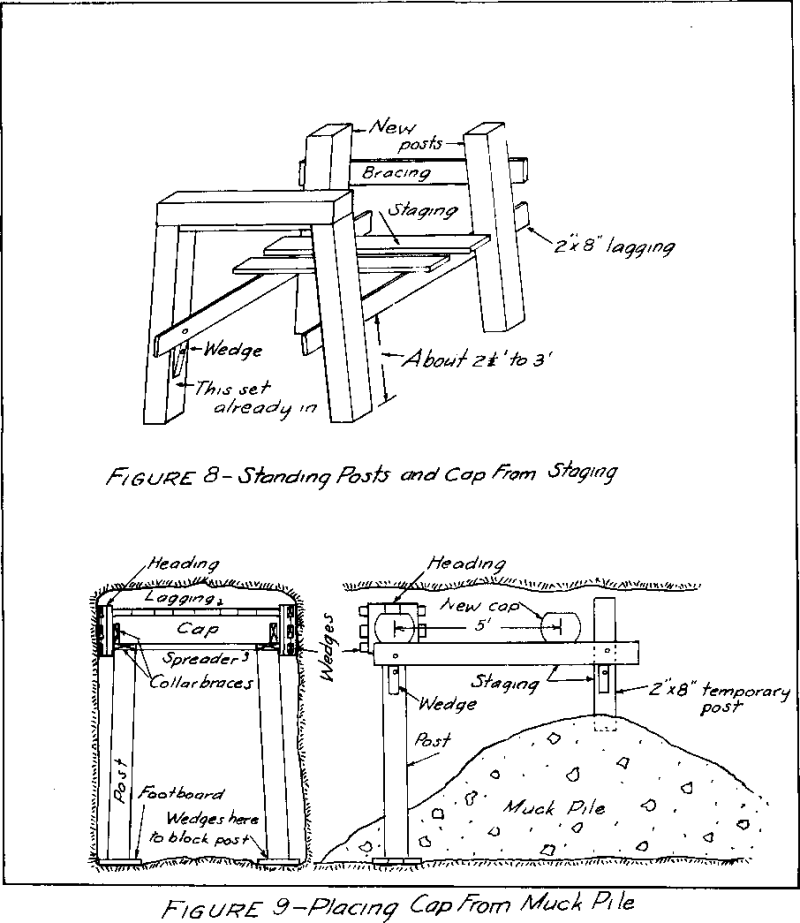 New
posts
Bracing
Staging
2"x8" lagging
Wedge
About 2½' to 3'
This set
already in
FIGURE 8-Standing Posts and Cap From Staging
Heading
Lagging
Cap
Spreader
Collarbraces
Post
Footboard
Wedges here
to block post
Wedges
Heading
New cap
5'
Staging
Wedge
2"x8" temporary
post
Post
Muck Pile
FIGURE 9-Placing Cap From Muck Pile